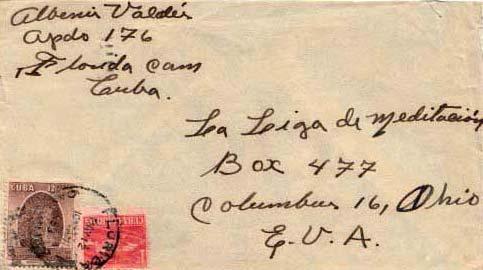 Albenis Valdés
Apdo 176
Florida Cam
Cuba.
La Liga de Meditación
Box 477
Columbus 16, Ohio
E.U.A.
CUBA 12
CUBA
FLORIDA